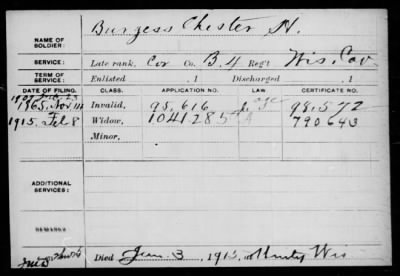 NAME OF SOLDIER: Burgess Chester N.
SERVICE: Late rank, Cor Co. B. 4 Reg't Wis. Cav
TERM OF SERVICE: Enlisted , 1 Discharged , 1
DATE OF FILING. CLASS. APPLICATION NO. LAW CERTIFICATE NO.
1865, Nov Invalid, 95,616 98.572
1915. Feb 8 Widow, 1041285 790643
Minor,
ADDITIONAL SERVICES:
REMARKS:
Died Jan. 3, 1915, at Wis